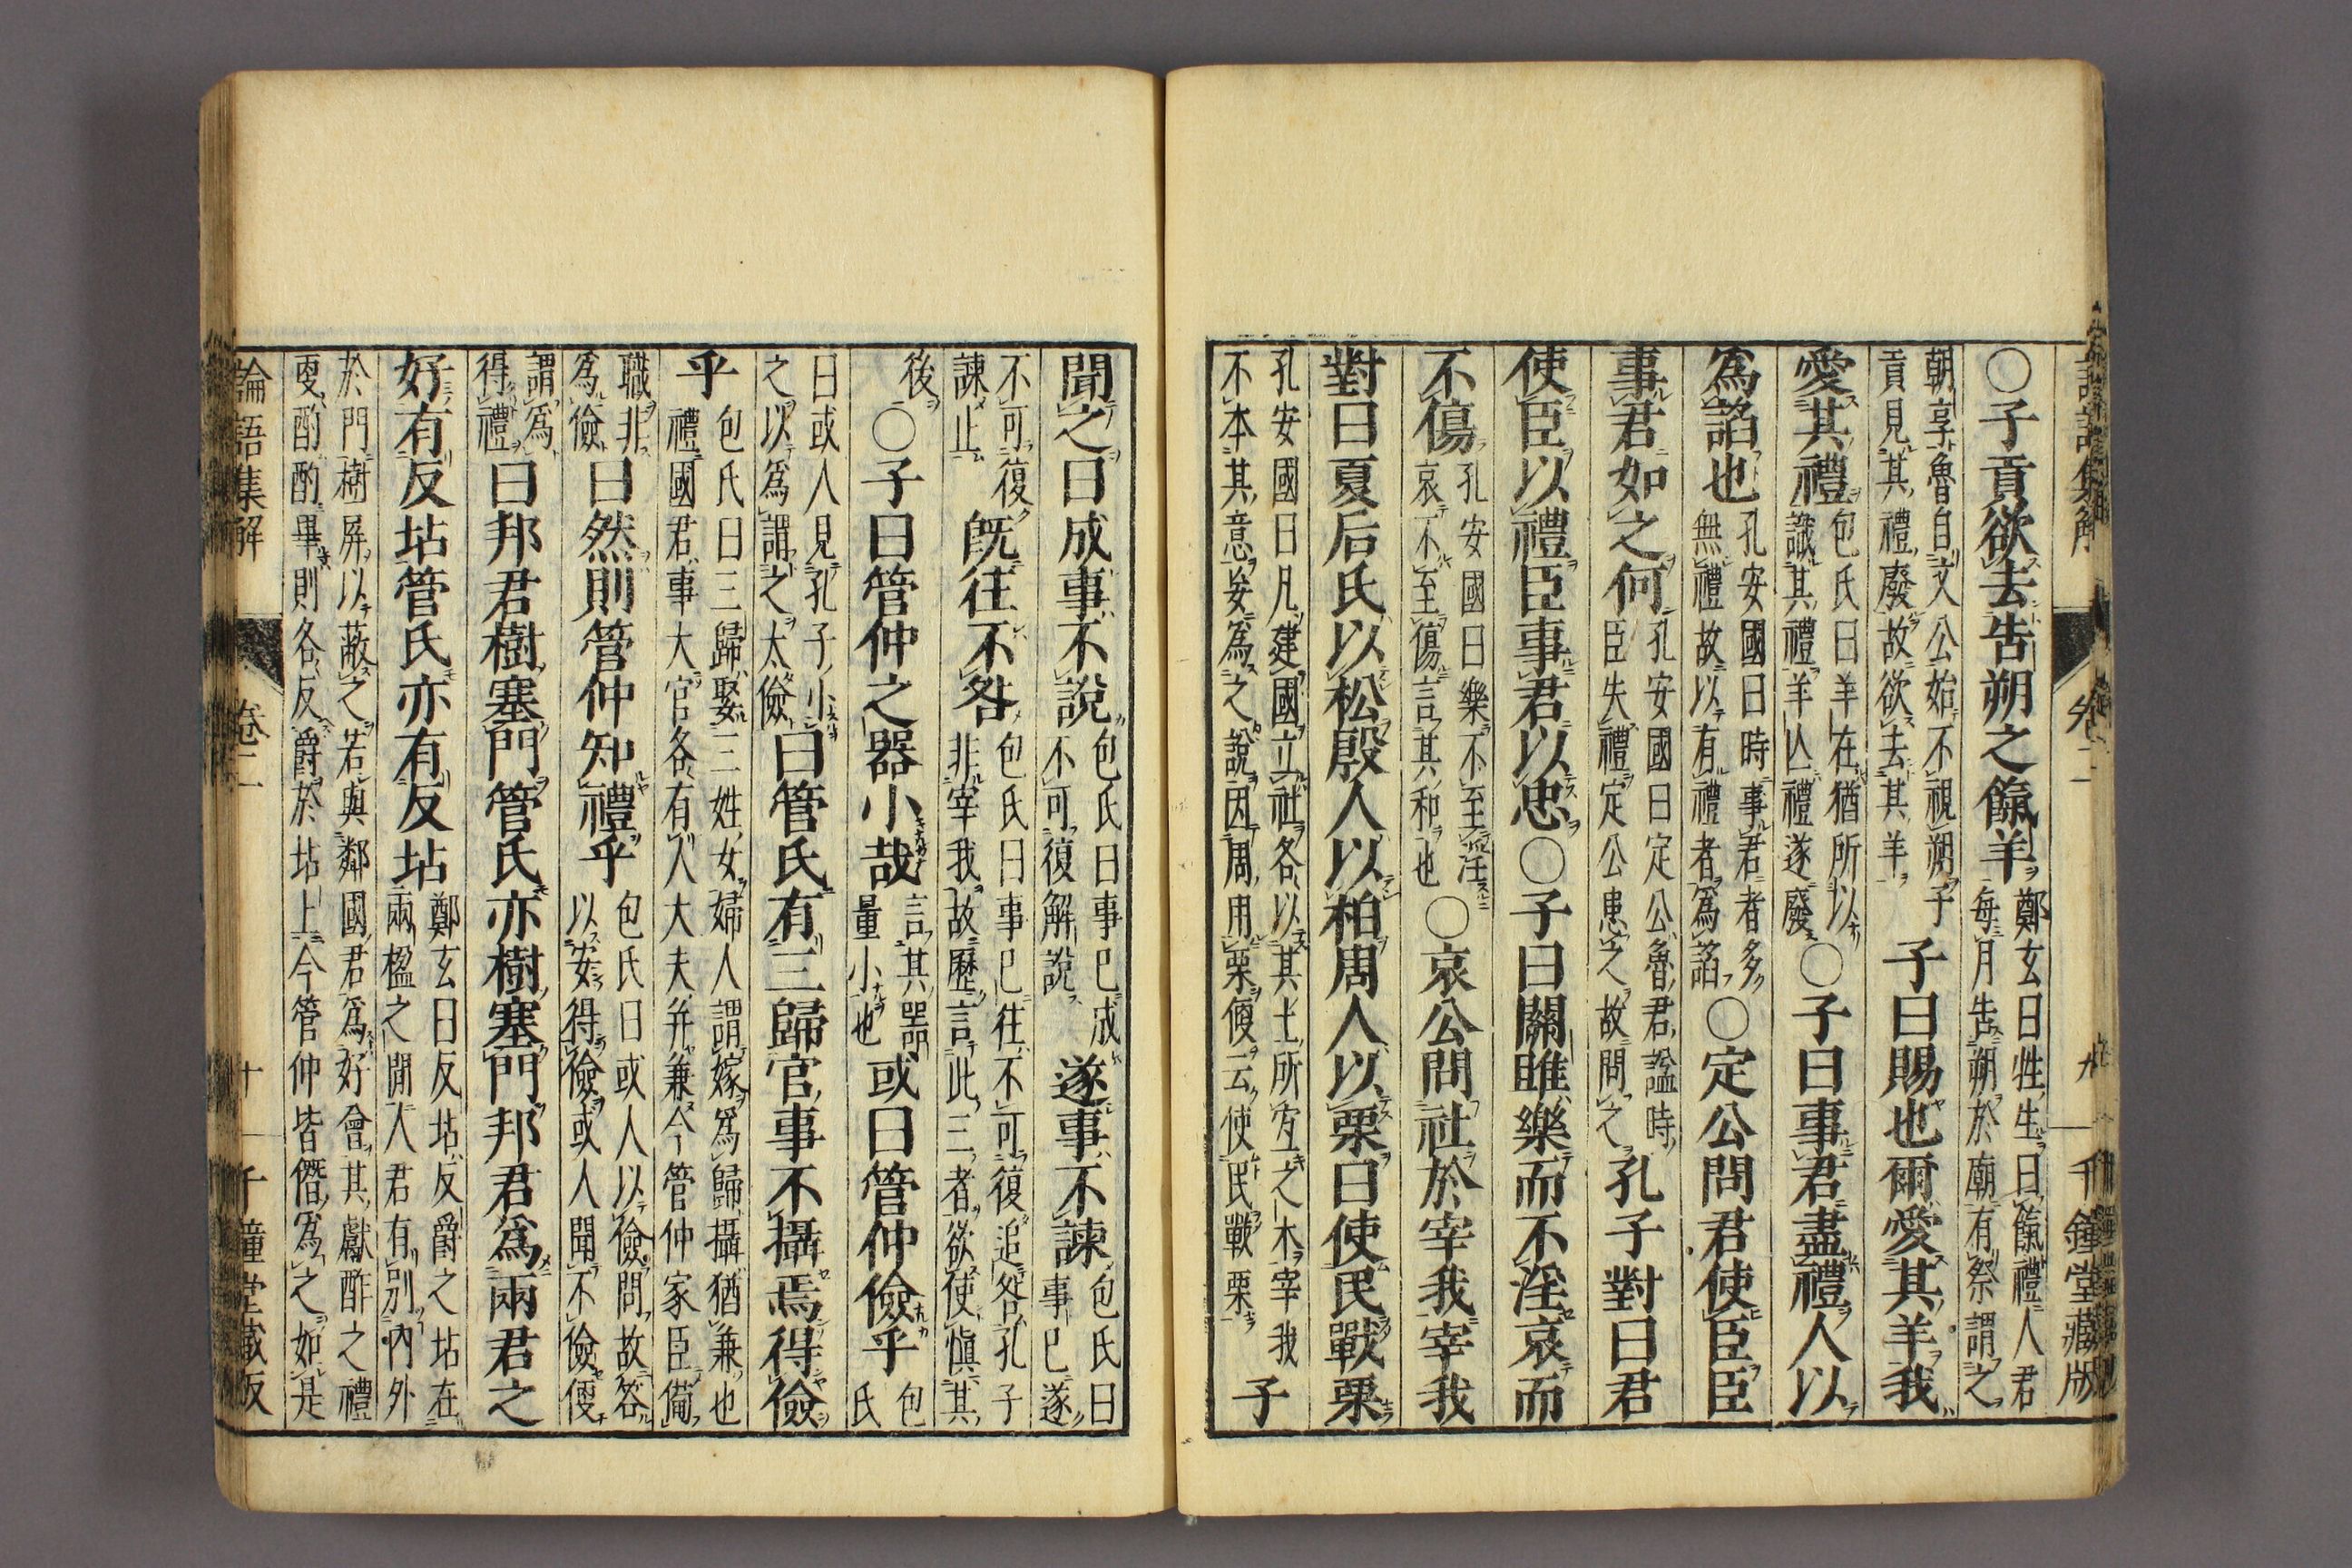 論語集解 卷二 九 千鍾堂藏版
〇子貢欲去告朔之餼羊鄭玄曰牲生曰餼禮人君每月告朔於廟有祭謂之
朝享魯自文公始不視朔子貢見其禮廢故欲去其羊子曰賜也爾愛其羊我
愛其禮包氏曰羊在猶所以識其禮羊亾禮遂廢〇子曰事君盡禮人以
爲諂也孔安國曰時事君者多無禮故以有禮者爲諂〇定公問君使臣臣
事君如之何孔安國曰定公魯君謚時臣失禮定公患之故問之孔子對曰君
使臣以禮臣事君以忠〇子曰關雎樂而不淫哀而
不傷孔安國曰樂不至淫哀不至傷言其和也〇哀公問社於宰我宰我
對曰夏后氏以松殷人以柏周人以栗曰使民戰栗
孔安國曰凡建國立社各以其土所宐之木宰我不本其意妄爲之說因周用栗便云使民戰栗子
聞之曰成事不說包氏曰事已成不可復解說遂事不諫包氏曰事已遂
不可復諫止旣往不咎包氏曰事已往不可復追咎孔子非宰我故歷言此三者欲使愼其
後〇子曰管仲之器小哉言其器量小也或曰管仲儉乎包氏
曰或人見孔子小之以爲謂之太儉曰管氏有三歸官事不攝焉得儉
乎包氏曰三歸娶三姓女婦人謂嫁爲歸攝猶兼也禮國君事大官各有人大夫幷兼今管仲家臣備
職非爲儉曰然則管仲知禮乎包氏曰或人以儉問故答以安得儉或人聞不儉便
謂爲得禮曰邦君樹塞門管氏亦樹塞門邦君爲兩君之
好有反坫管氏亦有反坫鄭玄曰反坫反爵之坫在兩楹之閒人君有別內外
於門樹屏以蔽之若與鄰國君爲好會其獻酢之禮更酌酌畢則各反爵於坫上今管仲皆僭爲之如是
論語集解 卷二 十 千鍾堂藏版